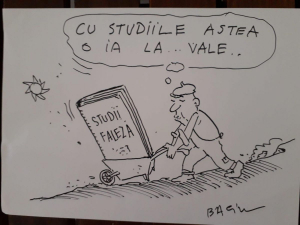 CU STUDIILE ASTEA
O IA LA...VALE..
STUDII
FALEZA